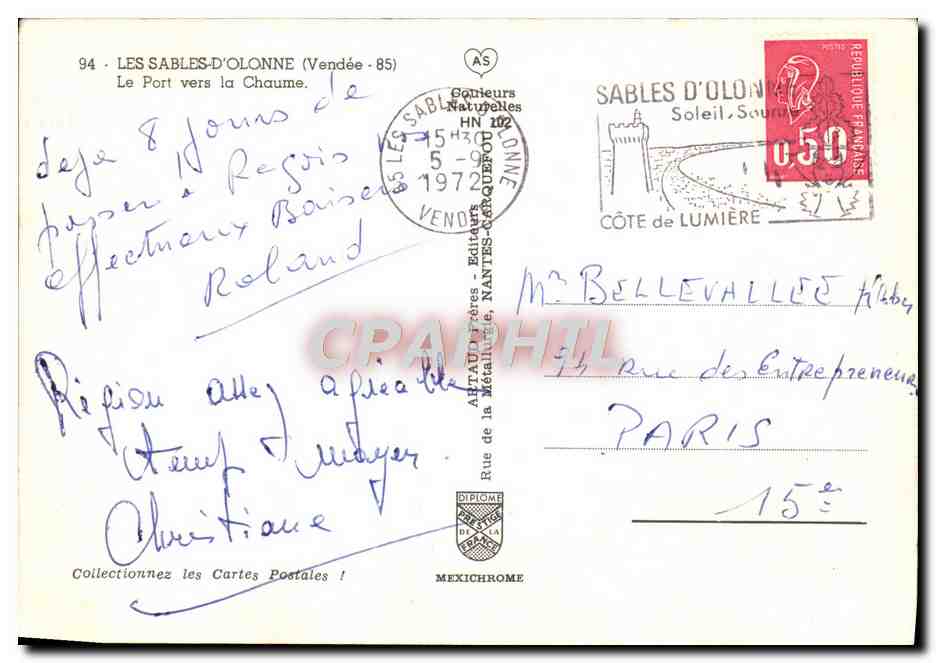 94 - LES SABLES-D'OLONNE (Vendée - 85)
Le Port vers la Chaume.
deja 8 jours de
passer
affectueux Baisers
Roland
Région assez agréable
temps moyen.
Christiane
Collectionnez les Cartes Postales !
AS
Couleurs
Naturelles
HN 102
ARTAUD Frères - Editeurs
Rue de la Métallurgie, NANTES-CARQUEFOU
DIPLOME
PRESTIGE
DE LA
FRANCE
MEXICHROME
85 LES SABLES D'OLONNE
15H30
5 - 9
1972
VENDÉE
SABLES D'OLONNE
Soleil,
CÔTE de LUMIÈRE
POSTES
REPUBLIQUE FRANÇAISE
0,50
CPAPHIL
Mr BELLEVALLÉE
rue des Entrepreneurs
PARIS
15e